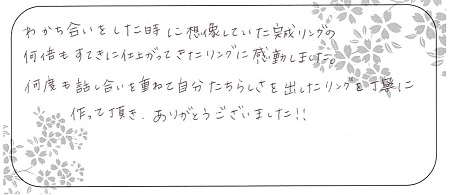 わかち合いをした時に想像していた完成リングの
何倍もすてきに仕上がってきたリングに感動しました。
何度も話し合いを重ねて自分たちらしさを出したリングを丁寧に
作って頂き、ありがとうございました!!